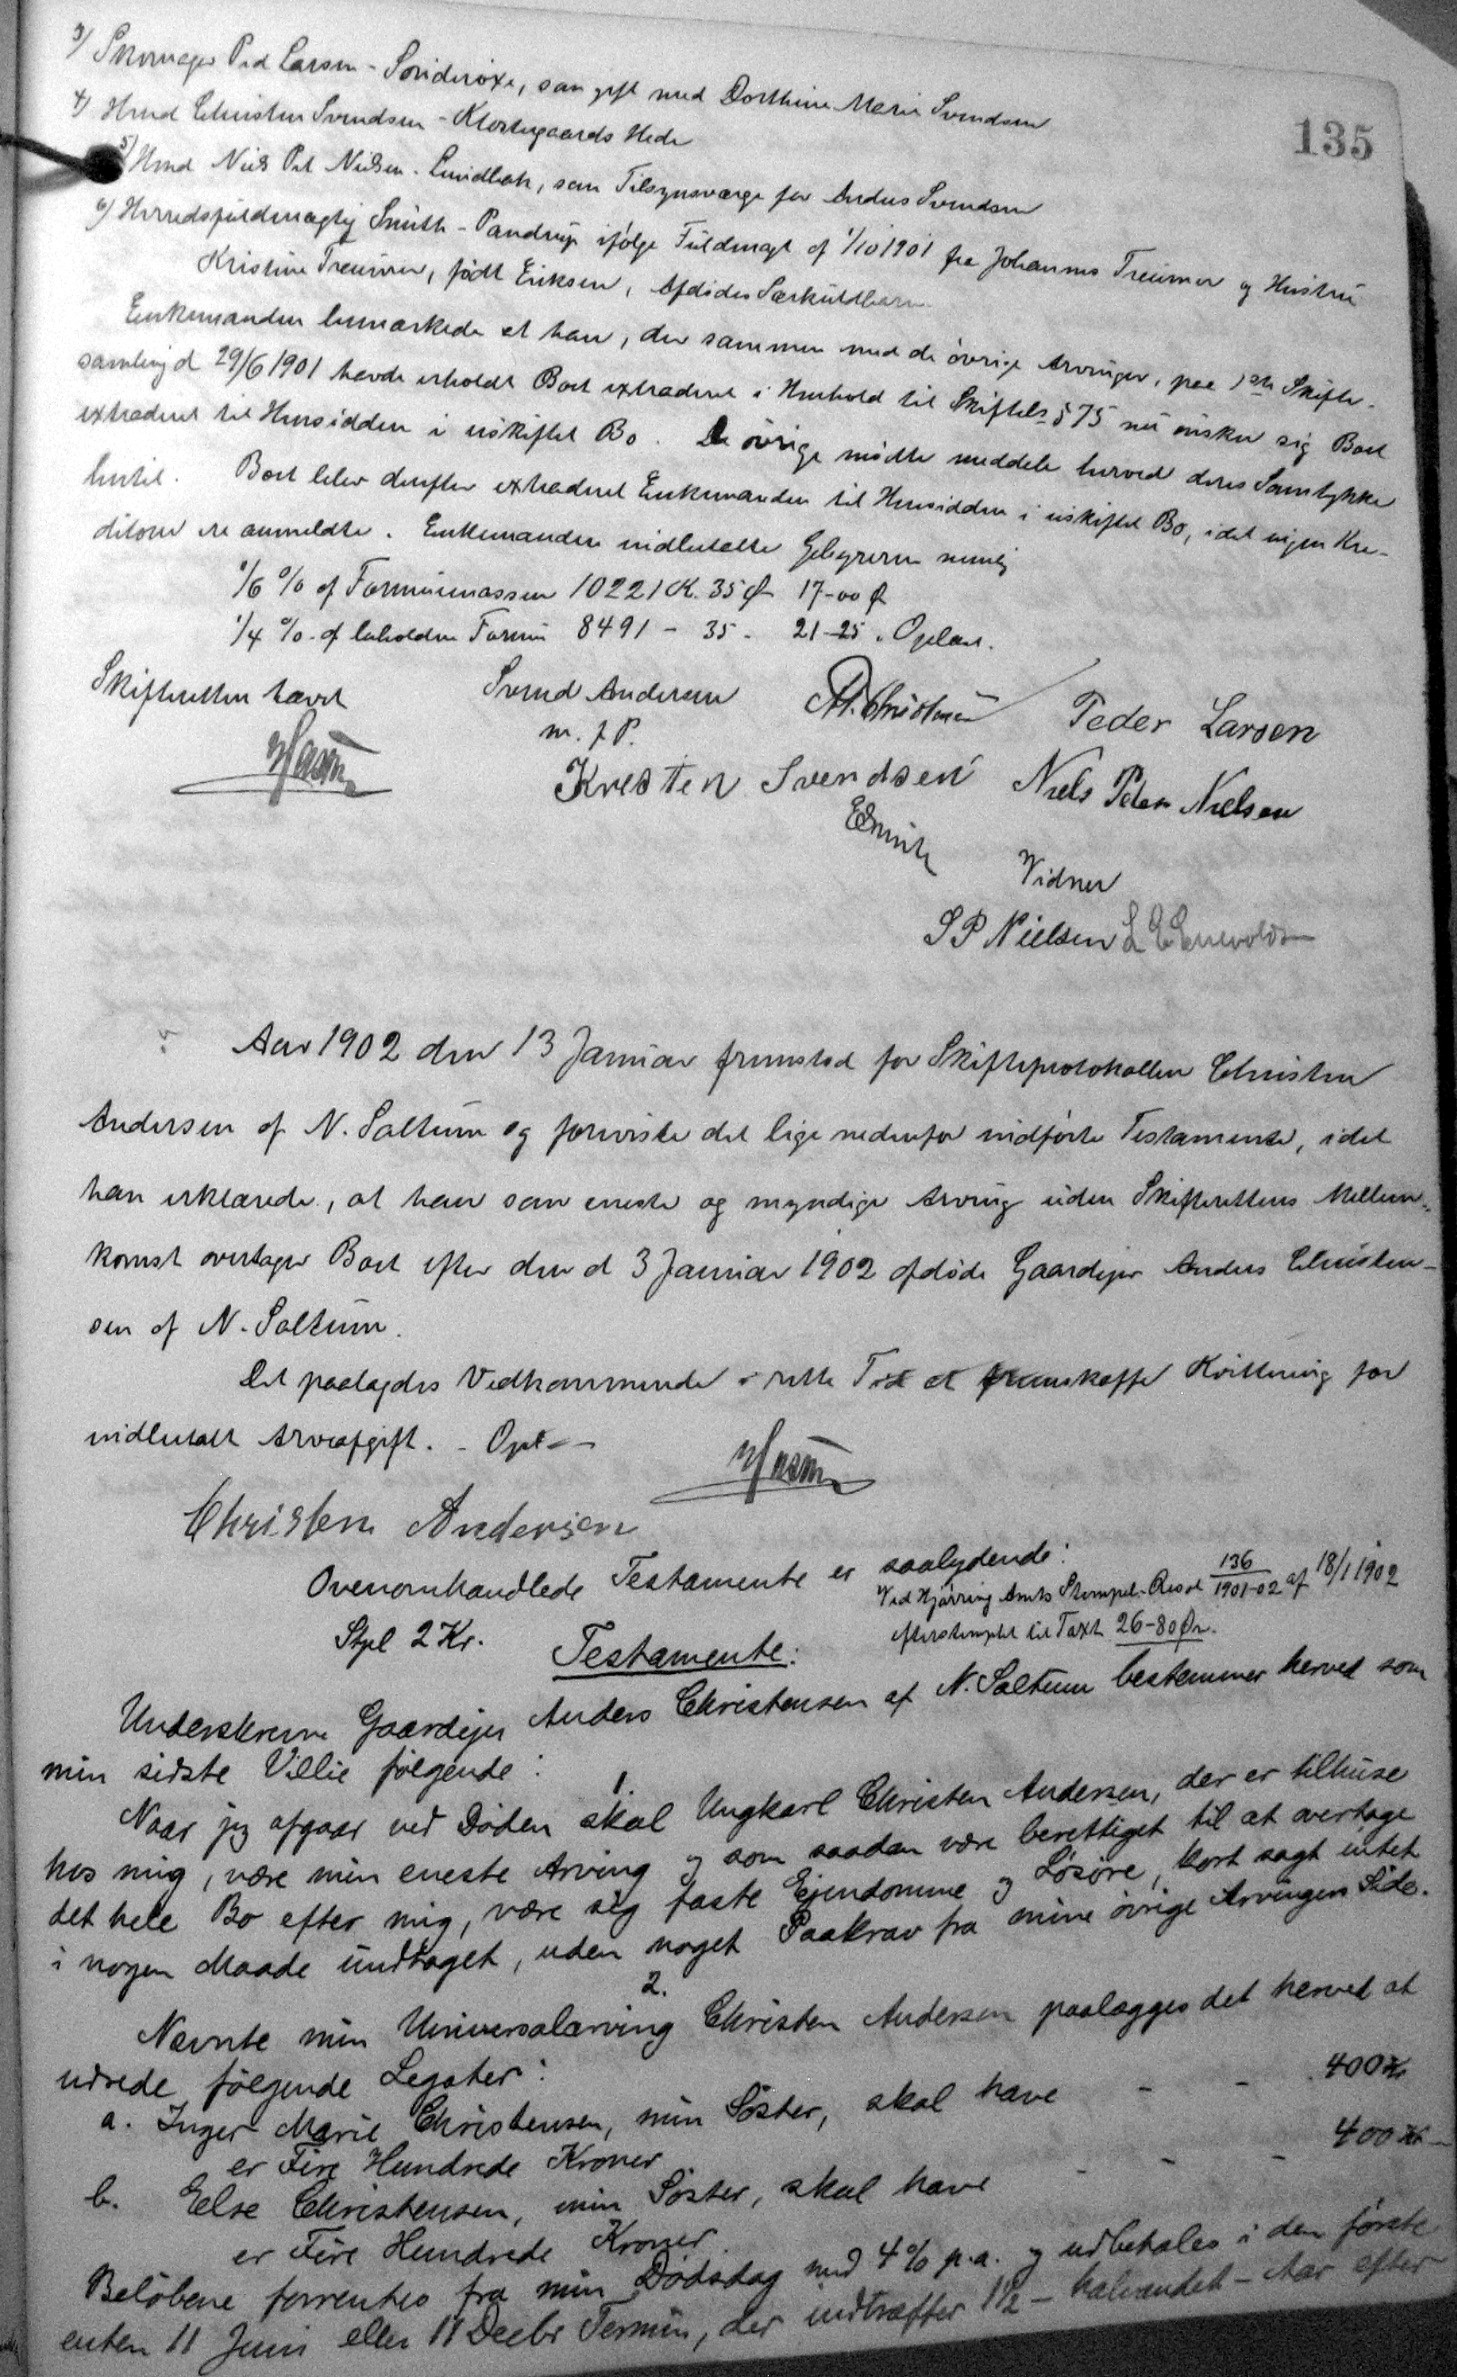 135
3) Skomager Ped Larsen - Sönderöxe, som gift med Dorthine Marie Svendsen
4) Hmd Christen Svendsen - Klostergaards Hede
5) Hmd Niels Pet Nielsen - Lundbak, som Tilsynsværge for Anders Svendsen
6) Herredsfuldmægtig Smith - Pandrup ifølge Fuldmagt af 1/10 1901 fra Johannes Treumer og Hustru
Kristine Treumer, födt Eriksen, Afdödes Særkuldbarn
Enkemanden bemærkede at han, der sammen med de övrige Arvinger, paa 1ste Skifte-
samling d 29/6 1901 havde erholdt Boet extraderet i Henhold til Skiftels § 75 nu önsker sig Boet
extraderet til Hensidden i uskiftet Bo. De övrige mödte meddele herved deres Samtykke
hertil. Boet blev derefter extraderet Enkemanden til Hensidden i uskiftet Bo, idet ingen Kre-
ditorer ere anmeldte. Enkemanden indbetalte Gebyrerne nemlig
1/6 % af Formuemassen 10221 K. 35 Ø 17-00 Ø
1/4 % af beholden Formue 8491 - 35 - 21-25 . Oplæst.
Skifteretten hævet
Svend Andersen
m. f. P.
Peder Larsen
Kresten Svendsen Niels Peder Nielsen
ESmith
Vidner
S P Nielsen L E Enevoldsen
Aar 1902 den 13 Januar fremstod for Skifteprotokollen Christen
Andersen af N. Saltum og foreviste det lige nedenfor indförte Testamente, idet
han erklærede, at han som eneste og myndige Arving uden Skifterettens Mellem-
komst overtager Boet efter den d 3 Januar 1902 afdöde Gaardejer Anders Christen-
sen af N. Saltum.
Det paalagdes Vedkommende i rette Tid at fremskaffe Kvittering for
indbetalt Arveafgift. - Opl
Christen Andersen
Ovenomhandlede Testamente er saalydende:
Ved Hjørring Amts Stempel-Resol 136/1901-02 af 18/1 1902
efterstemplet til Taxt 26-80 Øre.
Stpl 2 Kr.
Testamente:
Underskrevne Gaardejer Anders Christensen af N. Saltum bestemmer herved som
min sidste Villie følgende:
1.
Naar jeg afgaar ved Döden skal Ungkarl Christen Andersen, der er tilhuse
hos mig, være min eneste Arving og som saadan være berettiget til at overtage
det hele Bo efter mig, være sig faste Ejendomme og Lösöre, kort sagt intet
i nogen Maade undtaget, uden noget Paakrav fra mine övrige Arvingers Side.
2.
Nævnte min Universalarving Christen Andersen paalægges det herved at
udrede følgende Legater:
a. Inger Marie Christensen, min Söster, skal have - - 400 Kr
er Fire Hundrede Kroner
b. Else Christensen, min Söster, skal have - - - 400 Kr
er Fire Hundrede Kroner.
Belöbene forrentes fra min Dødsdag med 4% p.a. og udbetales i den förste
enten 11 Juni eller 11 Decbr Termin, der indtræffer 1½ - halvandet - Aar efter